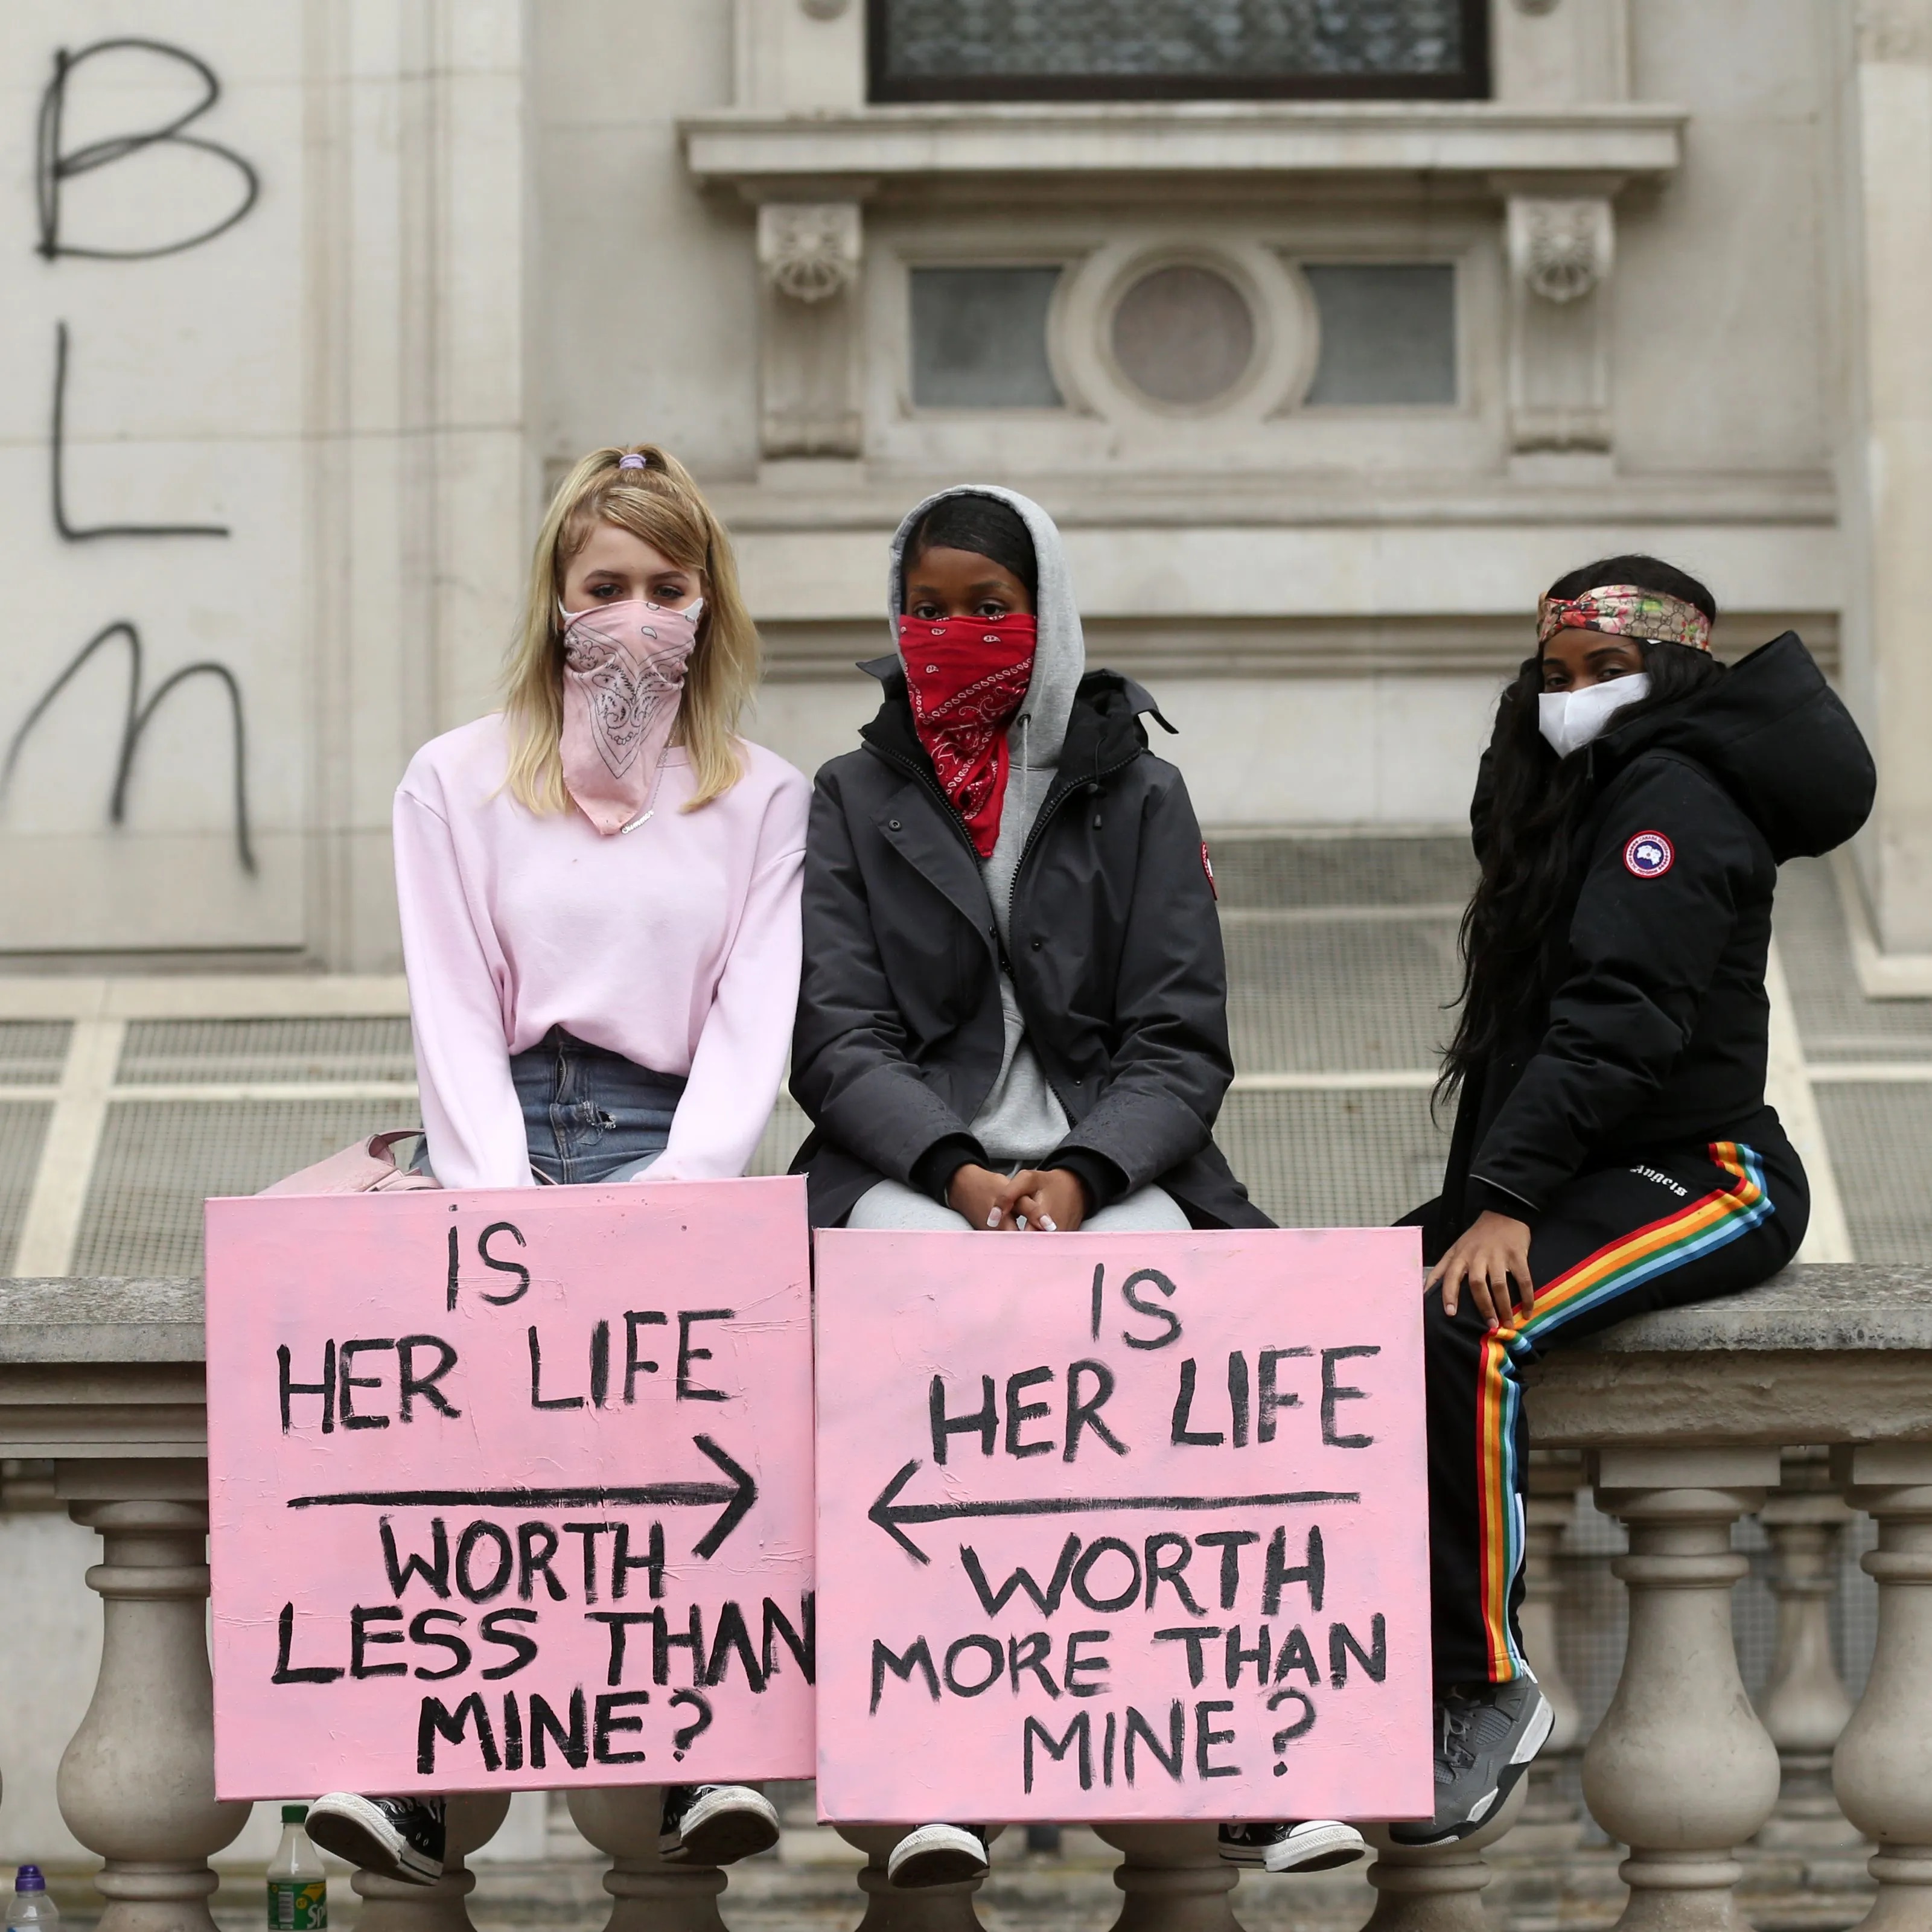 B
L
M
IS
HER LIFE
WORTH
LESS THAN
MINE?
IS
HER LIFE
WORTH
MORE THAN
MINE?
Angels